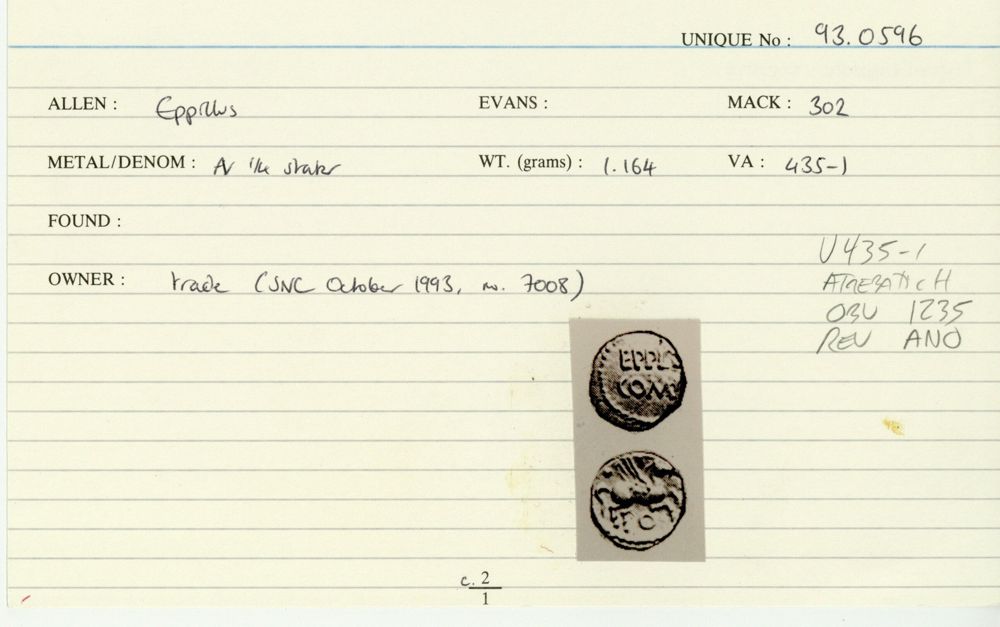 UNIQUE No : 93.0596
ALLEN : Eppillus EVANS : MACK : 302
METAL/DENOM : AV 1/4 stater WT. (grams) : 1.164 VA : 435-1
FOUND :
OWNER : trade (SNC October 1993, no. 7008)
V435-1
ATREBATIC H
OBV 1235
REV ANO
EPPIL
COM
EPO
c. 2
1